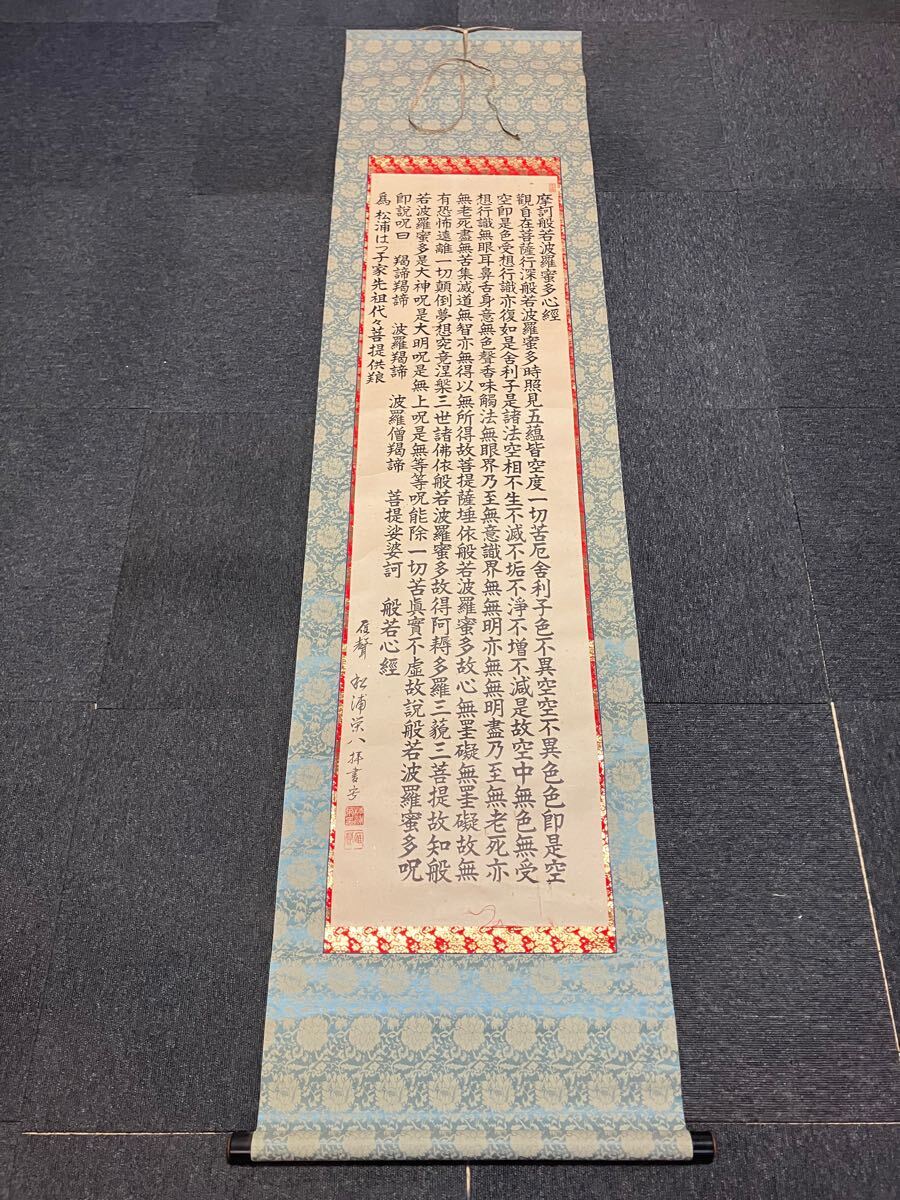 摩訶般若波羅蜜多心經
觀自在菩薩行深般若波羅蜜多時照見五蘊皆空度一切苦厄舍利子色不異空空不異色色即是空
空即是色受想行識亦復如是舍利子是諸法空相不生不滅不垢不淨不增不減是故空中無色無受
想行識無眼耳鼻舌身意無色聲香味觸法無眼界乃至無意識界無無明亦無無明盡乃至無老死亦
無老死盡無苦集滅道無智亦無得以無所得故菩提薩埵依般若波羅蜜多故心無罣礙無罣礙故無
有恐怖遠離一切顛倒夢想究竟涅槃三世諸佛依般若波羅蜜多故得阿耨多羅三藐三菩提故知般
若波羅蜜多是大神呪是大明呪是無上呪是無等等呪能除一切苦眞實不虛故說般若波羅蜜多呪
即說呪曰 羯諦羯諦 波羅羯諦 波羅僧羯諦 菩提娑婆訶 般若心經
為 松浦はつ子家先祖代々菩提供粮
松浦栄八拝書